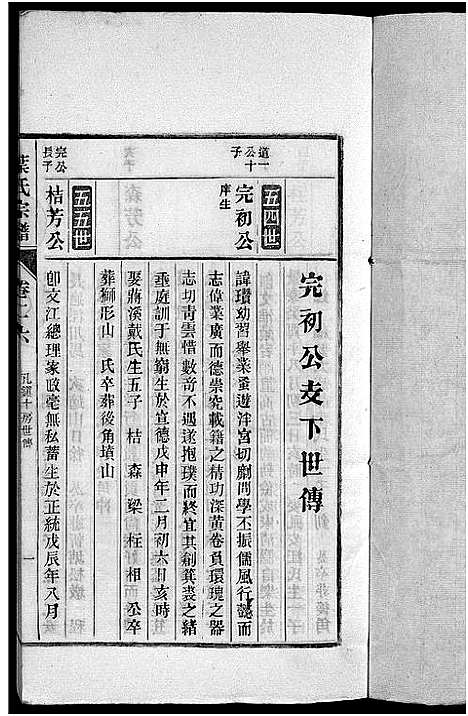 完初公支下世傳
道一公十子
五四世
完初公
庠生
諱瓚幼習舉業蚤遊泮宮切劘問學丕振儒風行懿而
志偉業廣而德崇究載籍之精功深黃卷負環瑰之器
志切青雲惜數奇不遇遂抱璞而終宜其創箕裘之緒
垂庭訓于無窮生於宣德戊申年二月初六日亥時
娶蔣溪戴氏生五子 桔 森 梁 枉 相 公卒
葬獅形山 氏卒葬後角墳山
完公長子
五五世
桔芳公
卽文江總理家政毫無私蓄生於正統戊辰年八月
葉氏宗譜
卷十六
十房世傳
一